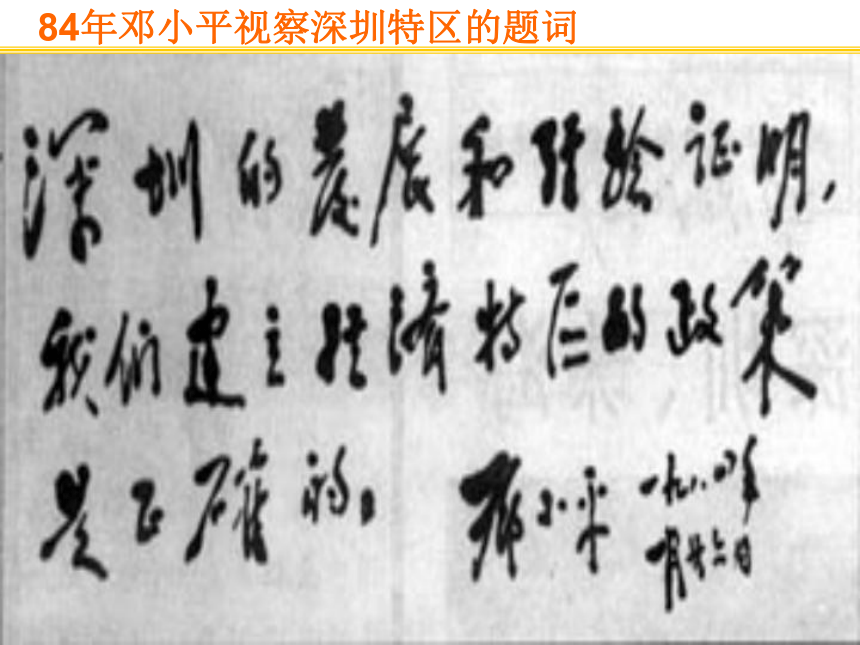 84年邓小平视察深圳特区的题词
深圳的发展和经验证明，
我们建立经济特区的政策
是正确的。 邓小平 一九八四年
一月廿六日